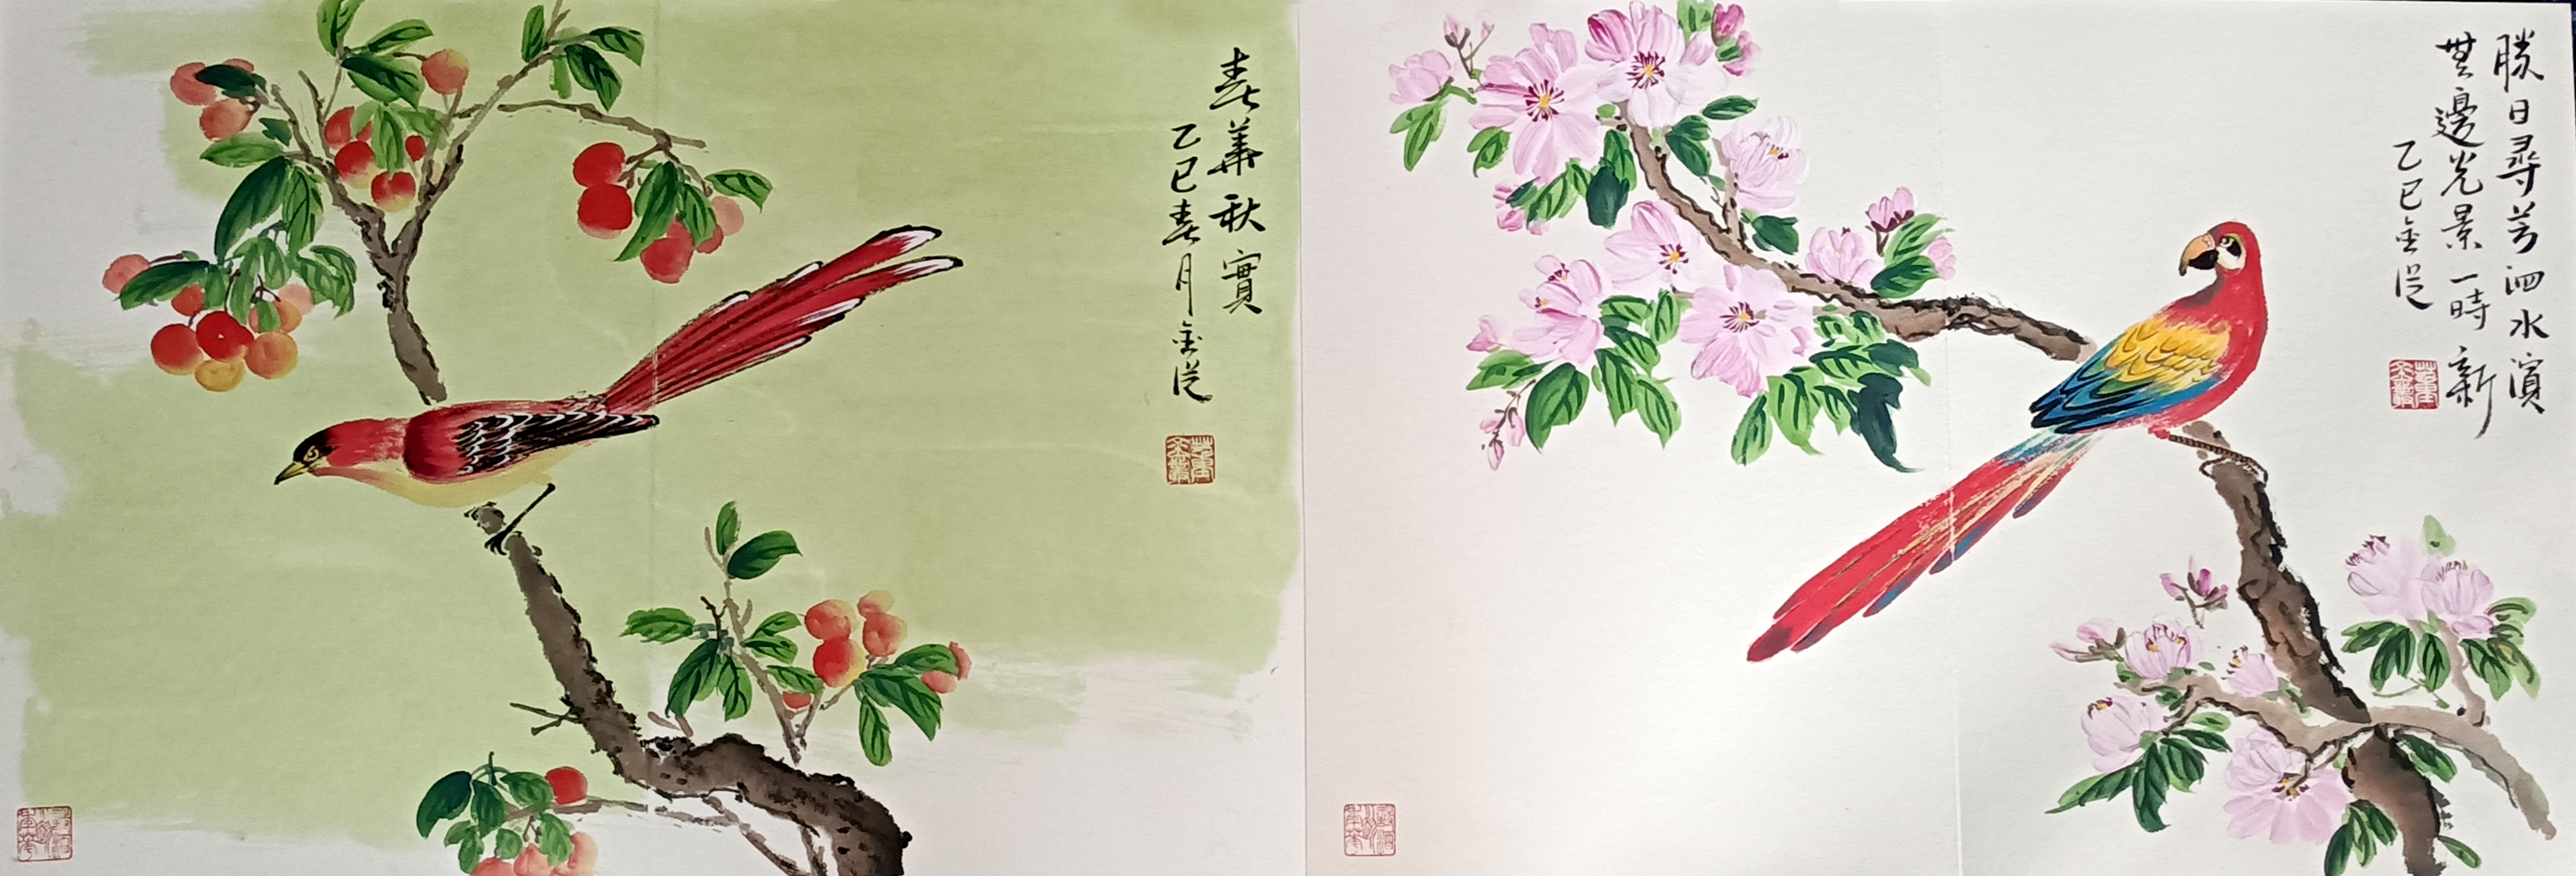 春華秋實
乙巳春月金
勝日尋芳泗水濱
無邊光景一時新
乙巳金